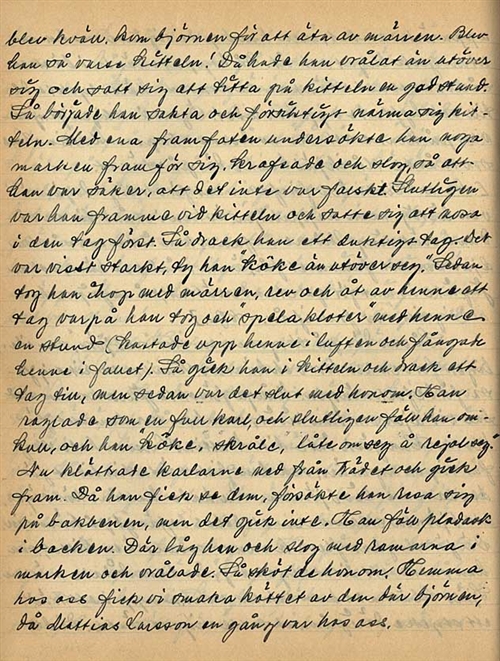 blev kväll. Kom björnen för att äta av märren. Blev
han så varse kitteln! Då hade han vrålat än utöver
sig och satt sig att titta på kitteln en god stund.
Så började han sakta och försiktigt närma sig kit-
teln. Med ena framfoten undersökte han noga
marken framför sig, krafsade och slog så att
han var säker, att det inte var falskt. Slutligen
var han framme vid kitteln och satte sig att nosa
i den tag först. Så drack han ett duktigt tag. Det
var visst starkt, ty han "köke än utöver sej". Sedan
tog han ihop med märren, rev och åt av henne ett
tag varpå han tog och "spela kloter" med henne
en stund (kastade upp henne i luften och fångade
henne i fallet). Så gick han i kitteln och drack ett
tag till, men sedan var det slut med honom. Han
raglade som en full karl, och slutligen föll han om-
kull, och han "köke, skråle, låte om sej å rejol sej."
Nu klättrade karlarne ned från trädet och gick
fram. Då han fick se dem, försökte han resa sig
på bakbenen, men det gick inte. Han föll pladask
i backen. Där låg han och slog med ramarna i
marken och vrålade. Så sköt de honom. Hemma
hos oss fick vi smaka köttet av den där björnen,
då Mattias Larsson en gång var hos oss.